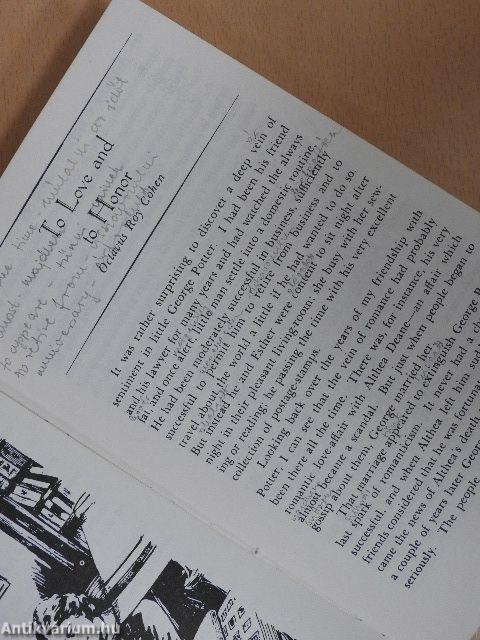 To Love and
to Honor
Octavus Roy Cohen
It was rather surprising to discover a deep vein of
sentiment in little George Potter. I had been his friend
and his lawyer for many years and had watched the always
fat and once alert little man settle into a domestic routine.
He had been moderately successful in business, sufficiently
successful to permit him to retire from business and to
travel about the world a little if he had wanted to do so.
But instead he and Esther were content to sit night after
night in their pleasant living-room: she busy with her sew-
ing or reading; he passing the time with his very excellent
collection of postage-stamps.
Looking back over the years of my friendship with
Potter, I can see that the vein of romance had probably
been there all the time. There was for instance, his very
romantic love-affair with Althea Deane—an affair which
almost became a scandal. But just when people began to
gossip about them, George married her.
That marriage appeared to extinguish George P
last spark of romanticism. It never had a ch
successful, and when Althea left him sudd
friends considered that he was fortuna
came the news of Althea's death
a couple of years later Georg
seriously. The people
to appear
to retire from
unnecessary
Antikvarium.hu